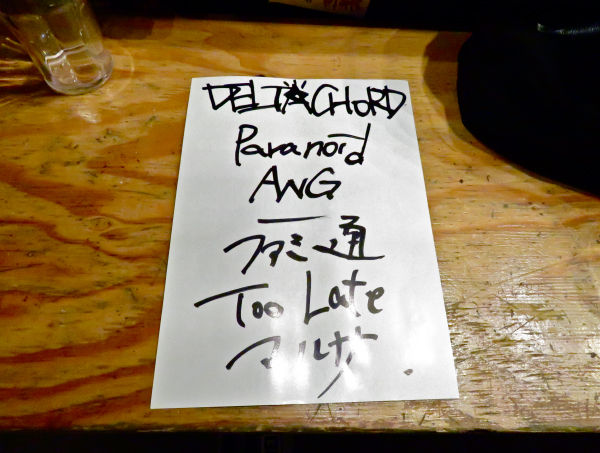 DELTA★CHORD
Paranoid
ANG
ファミ通
Too Late
マルサ